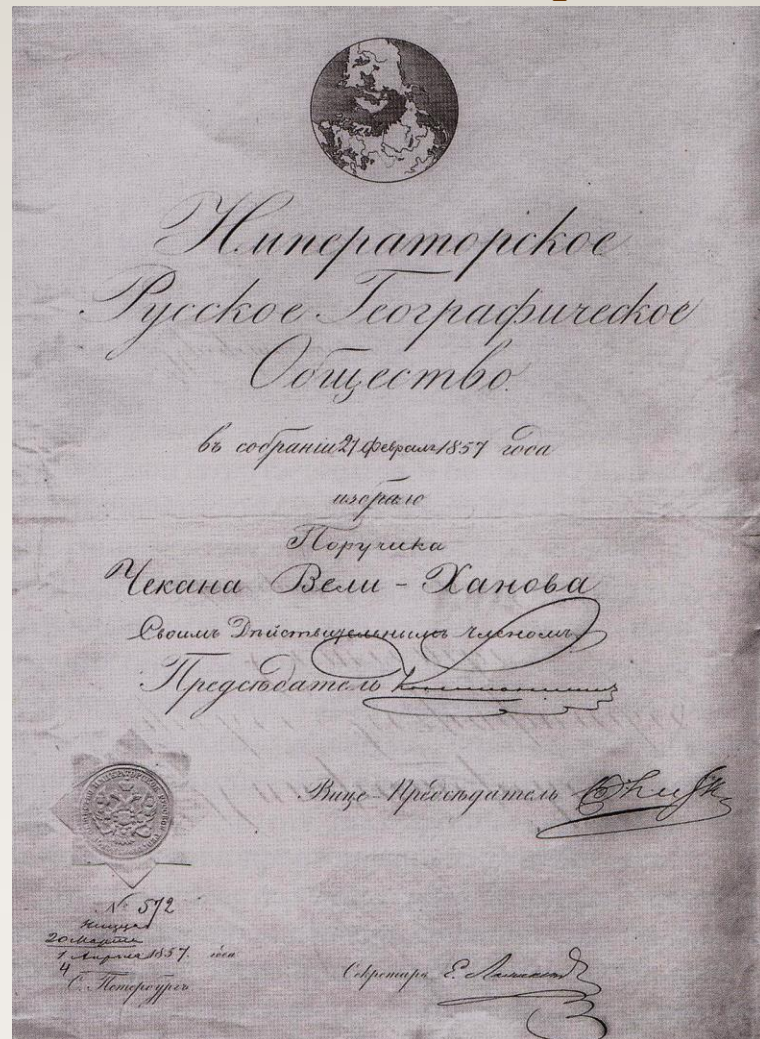 Императорское
Русское Географическое
Общество
въ собраніи 27 февраля 1857 года
избрало
Поручика
Чекана Вели-Ханова
Своимъ Дѣйствительнымъ членомъ
Предсѣдатель
Вице-Предсѣдатель
№ 572
Ницца
20 Марта
1 Апрѣля 1857. года
4
С. Петербургъ
Секретарь Е.